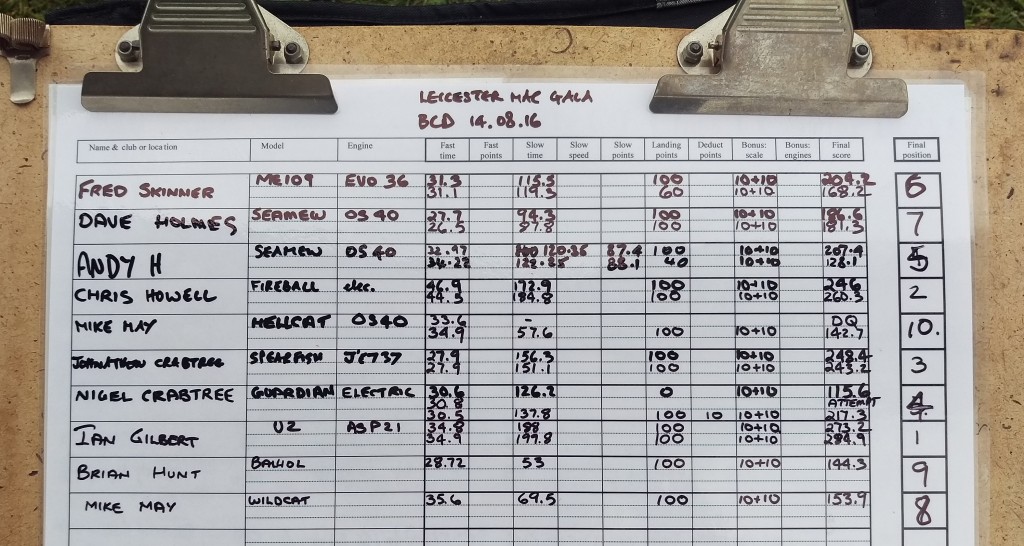 LEICESTER MAC GALA
BCD 14.08.16
Name & club or location Model Engine Fast time Fast points Slow time Slow speed Slow points Landing points Deduct points Bonus: scale Bonus: engines Final score Final position
FRED SKINNER ME109 EVO 36 31.3 115.5 100 10+10 204.2 6
31.1 119.5 60 10+10 168.2
DAVE HOLMES SEAMEW OS 40 27.7 94.3 100 10+10 186.6 7
26.5 97.8 100 10+10 181.3
ANDY H SEAMEW OS 40 32.97 120.35 87.4 100 10+10 207.4 5
34.22 128.85 88.1 40 10+10 128.1
CHRIS HOWELL FIREBALL elec. 46.9 172.9 100 10+10 246 2
44.5 184.8 100 10+10 260.3
MIKE MAY HELLCAT OS40 33.6 - DQ 10.
34.9 57.6 100 10+10 142.7
JOHNATHON CRABTREE SPEARFISH JEC737 27.9 156.3 100 10+10 248.4 3
27.9 151.1 100 10+10 243.2
NIGEL CRABTREE GUARDIAN ELECTRIC 30.6 126.2 0 10+10 115.6 4
30.8 ATTEMPT
30.5 137.8 100 10 10+10 217.3
IAN GILBERT U2 ASP21 34.8 188 100 10+10 273.2 1
34.9 199.8 100 10+10 284.9
BRIAN HUNT BALLIOL 28.72 53 100 10+10 144.3 9
MIKE MAY WILDCAT 35.6 69.5 100 10+10 153.9 8